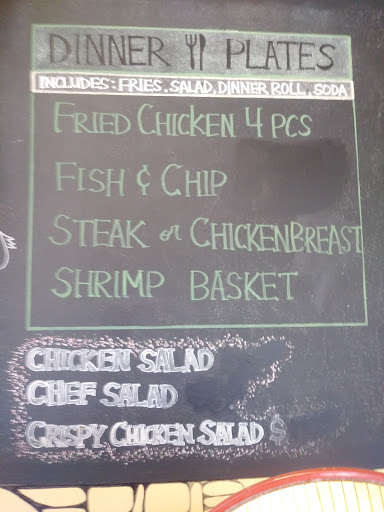 DINNER PLATES
INCLUDES: FRIES, SALAD, DINNER ROLL, SODA
FRIED CHICKEN 4 PCS
FISH & CHIP
STEAK or CHICKENBREAST
SHRIMP BASKET
CHICKEN SALAD
CHEF SALAD
CRISPY CHICKEN SALAD $